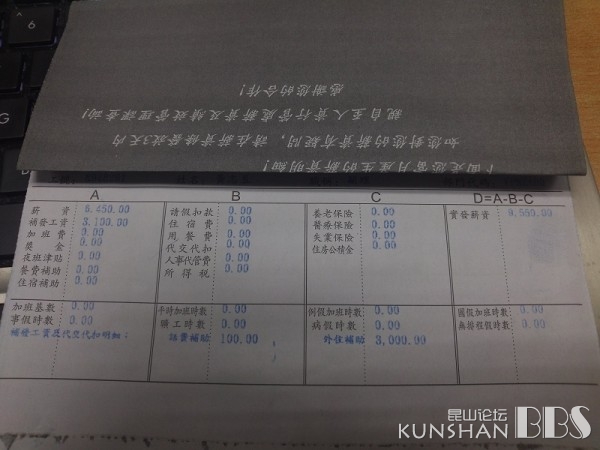 6
下面是您當月產生的薪資明細!
如您對您的薪資有疑問，請在薪資條發放3天內
親自至人資行管處薪資及績效管理課查詢!
感謝您的合作!
A B C D=A-B-C
薪資 請假扣款 0.00 養老保險 0.00 實發薪資
補發工資 3,100.00 住宿費 0.00 醫療保險 0.00
加班費 0.00 用餐費 0.00 失業保險 0.00
獎金 0.00 代交代扣 0.00 住房公積金 0.00
夜班津貼 0.00 人事代管費 0.00
餐費補助 0.00 所得稅 0.00
住宿補助 0.00
加班基數 0.00 平時加班時數 0.00 例假加班時數 0.00 國假加班時數 0.00
事假時數 0.00 曠工時數 0.00 病假時數 0.00 無排程假時數 0.00
補發工資及代交代扣明細： 話費補助 100.00 外住補助 3,000.00
昆山论坛
KUNSHAN BBS